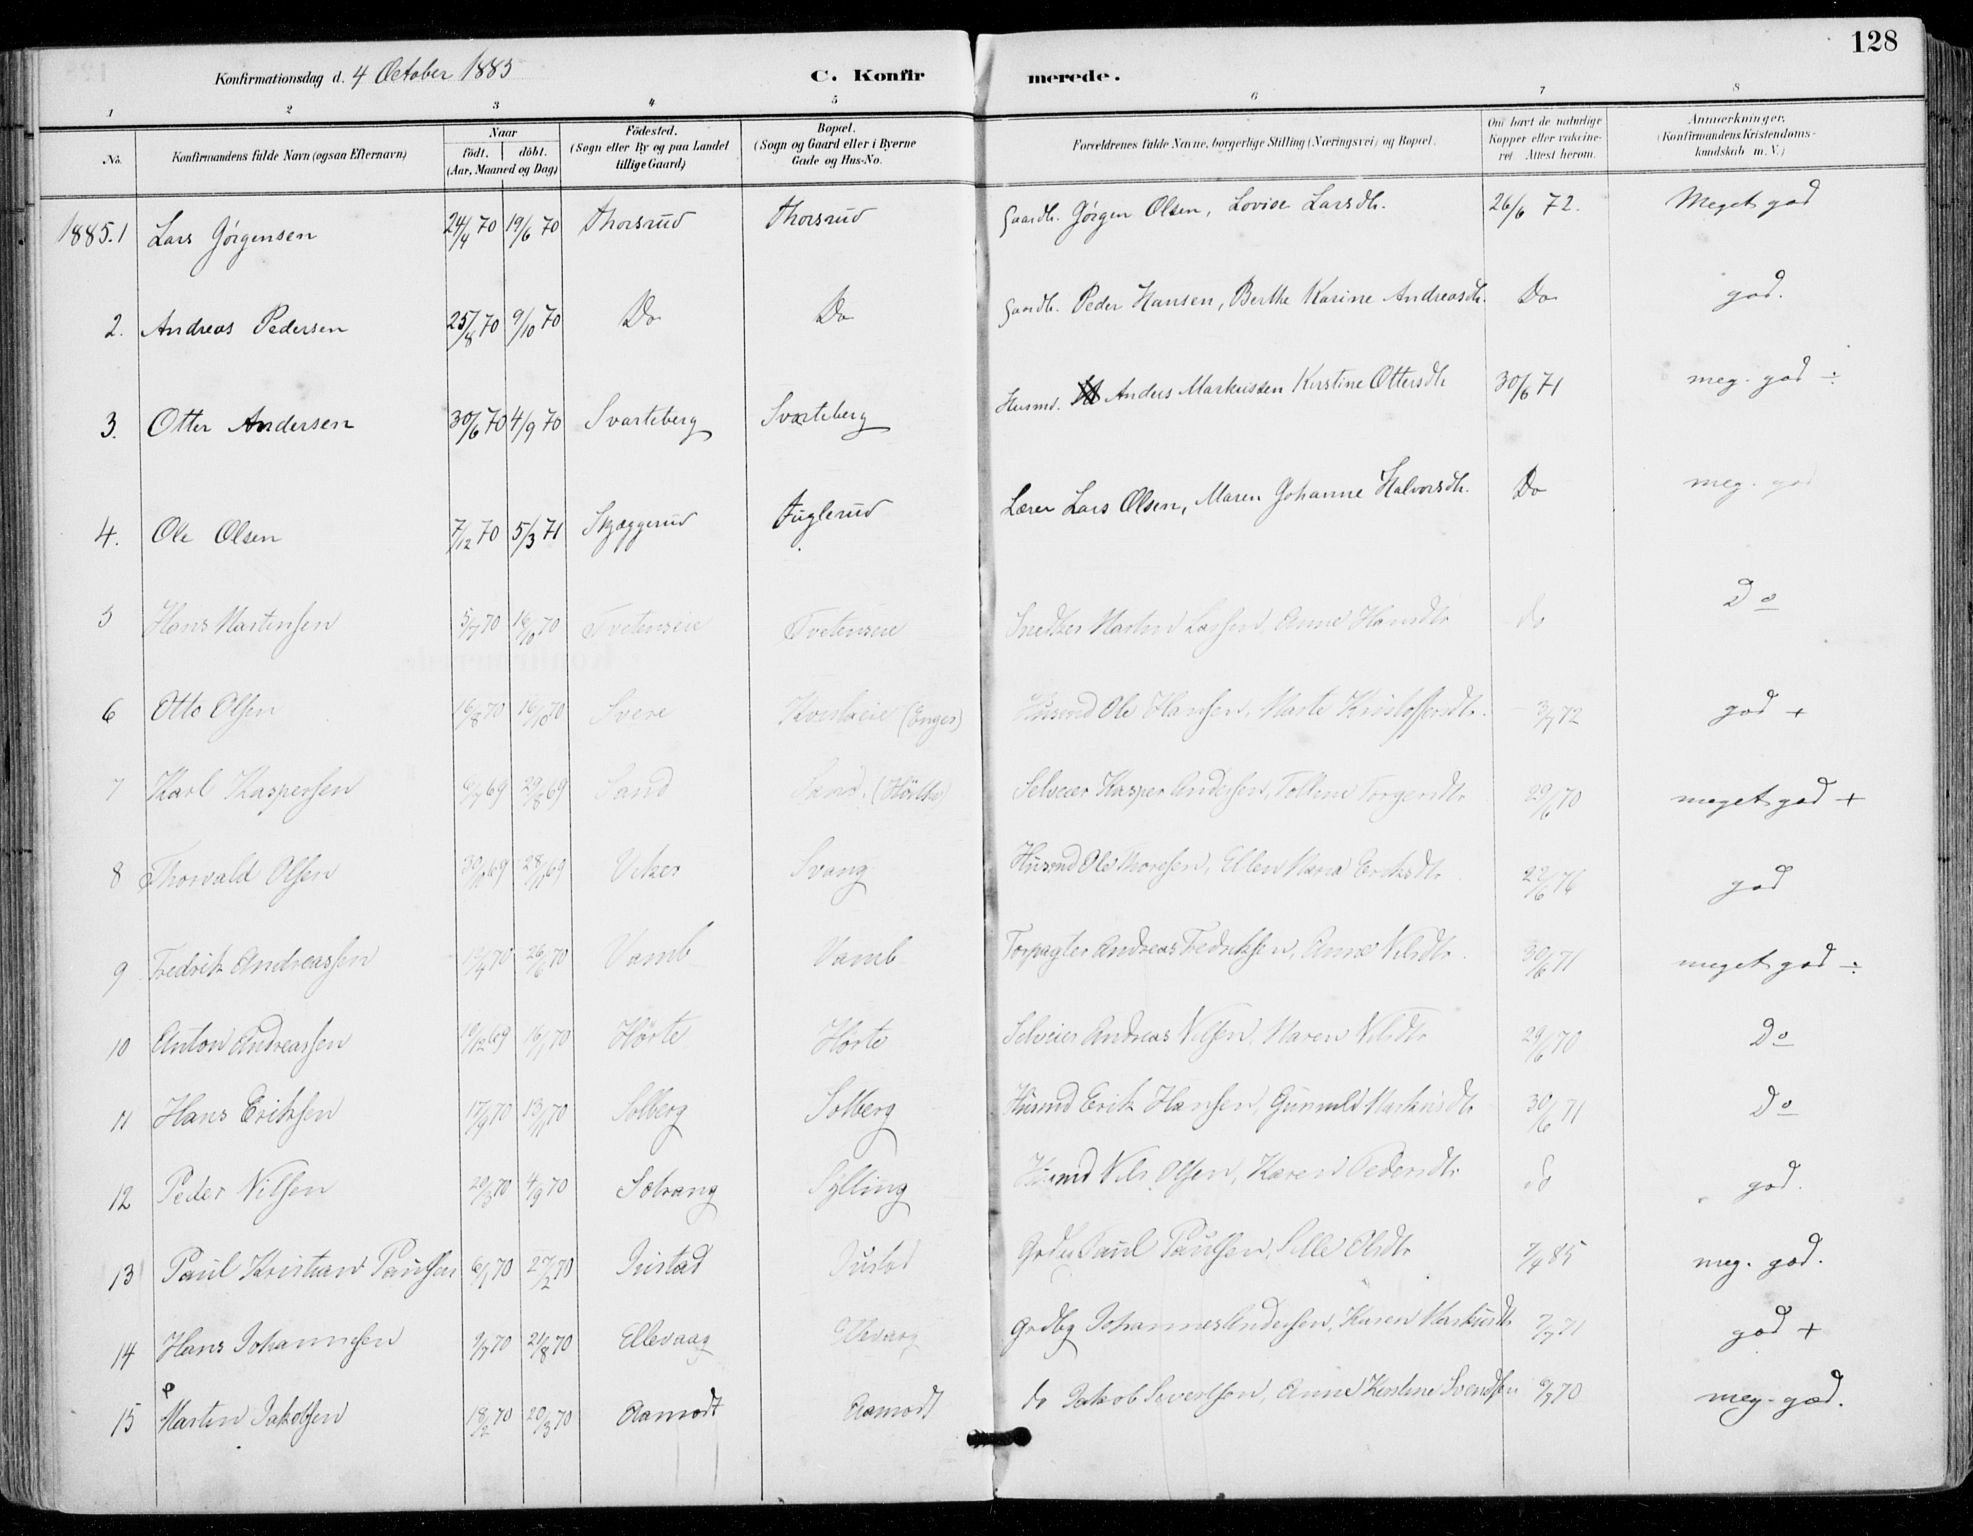 128
Konfirmationsdag d. 4 October 1885 C. Konfirmerede.
1 2 3 4 5 6 7 8
No. Konfirmandens fulde Navn (ogsaa Efternavn) Naar født. døbt. (Aar, Maaned og Dag) Fødested. (Sogn eller By og paa Landet tillige Gaard) Bopæl. (Sogn og Gaard eller i Byerne Gade og Hus-No. Forældrenes fulde Navne, borgerlige Stilling (Næringsvei) og Bopæl. Om havt de naturlige Kopper eller vakcineret Attest herom. Anmærkninger. (Konfirmandens Kristendomskundskab m.V.)
1885.1 Lars Jørgensen 24/4 70 19/6 70 Thorsrud Thorsrud Gaardb. Jørgen Olsen, Lovise Larsdtr. 26/6 72. Meget god
2. Andreas Pedersen 25/8 70 9/10 70 Do Do Gaardb. Peder Hansen, Berthe Karine Andreasdtr. Do god.
3. Otter Andersen 30/6 70 4/9 70 Svarteberg Svarteberg Husmd. Anders Markussen Kirstine Ottersdtr 30/6 71 meg. god ÷
4. Ole Olsen 7/12 70 5/3 71 Skjæggerud Fuglerud Lærer Lars Olsen, Maren Johanne Halvorsdtr. Do meg. god
5 Hans Martinsen 5/7 70 16/10 70 Tveteneie Tveteneie Snedker Martin Larsen, Anne Hansdtr do Do
6 Otto Olsen 16/8 70 16/10 70 Svere (Enger) Husmd Ole Hansen, Marte Kristoffersdtr. 3/7 72 god +
7 Karl Kaspersen 6/7 69 29/8 69 Sand Sand. Selveier Kasper Andersen, Torgersdtr 29/6 70 meget god +
8 Thorvald Olsen 28/11 69 Veker Svang Husmd Ole Thoresen, Ellen Maria Eriksdtr 22/6 76 god
9 Fredrik Andreassen 26/6 70 Vamb Vamb Andreas Fredriksen, Anne Nilsdtr. 30/6 71 meget god ÷
10 Anton Andreassen 16/1 70 Hörte Hörte Selveier Andreas Nilsen, Maren Nilsdtr 29/6 70 Do
11 Hans Eriksen 17/9 70 13/11 70 Solberg Solberg Husmd Erik Hansen, Gunnild Markusdtr 30/6 71 Do
12 Peder Nilsen 20/3 70 4/9 70 Solvang Sylling Husmd Nils Olsen, Karen Pedersdtr do god.
13 Paul Kristian Paulsen 6/1 70 27/2 70 Justad Justad Paul Paulsen, Sille Olsdtr 7/4 85 meg. god.
14 Hans Johannesen 9/7 70 21/8 70 Ellevaag Ellevaag Grdbg Johannes Andersen, Karen Markusdtr 7/7 71 god +
15 Martin Jakobsen 18/2 70 20/3 70 Aamodt Aamodt do Jakob Sivertsen, Anne Kirstine Svendsen 9/7 70 meg. god.